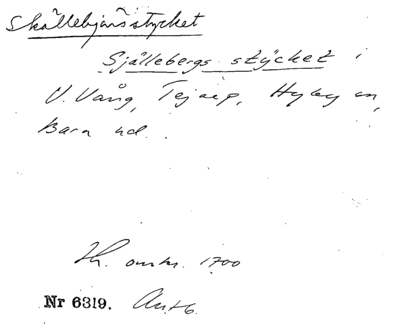 Skällebjärsstycket
Själlebergs stycket i
V. Vång, Tejarp, Hyby sn,
Bara hd.
Kl. omkr. 1700
Nr 6319. Antb.